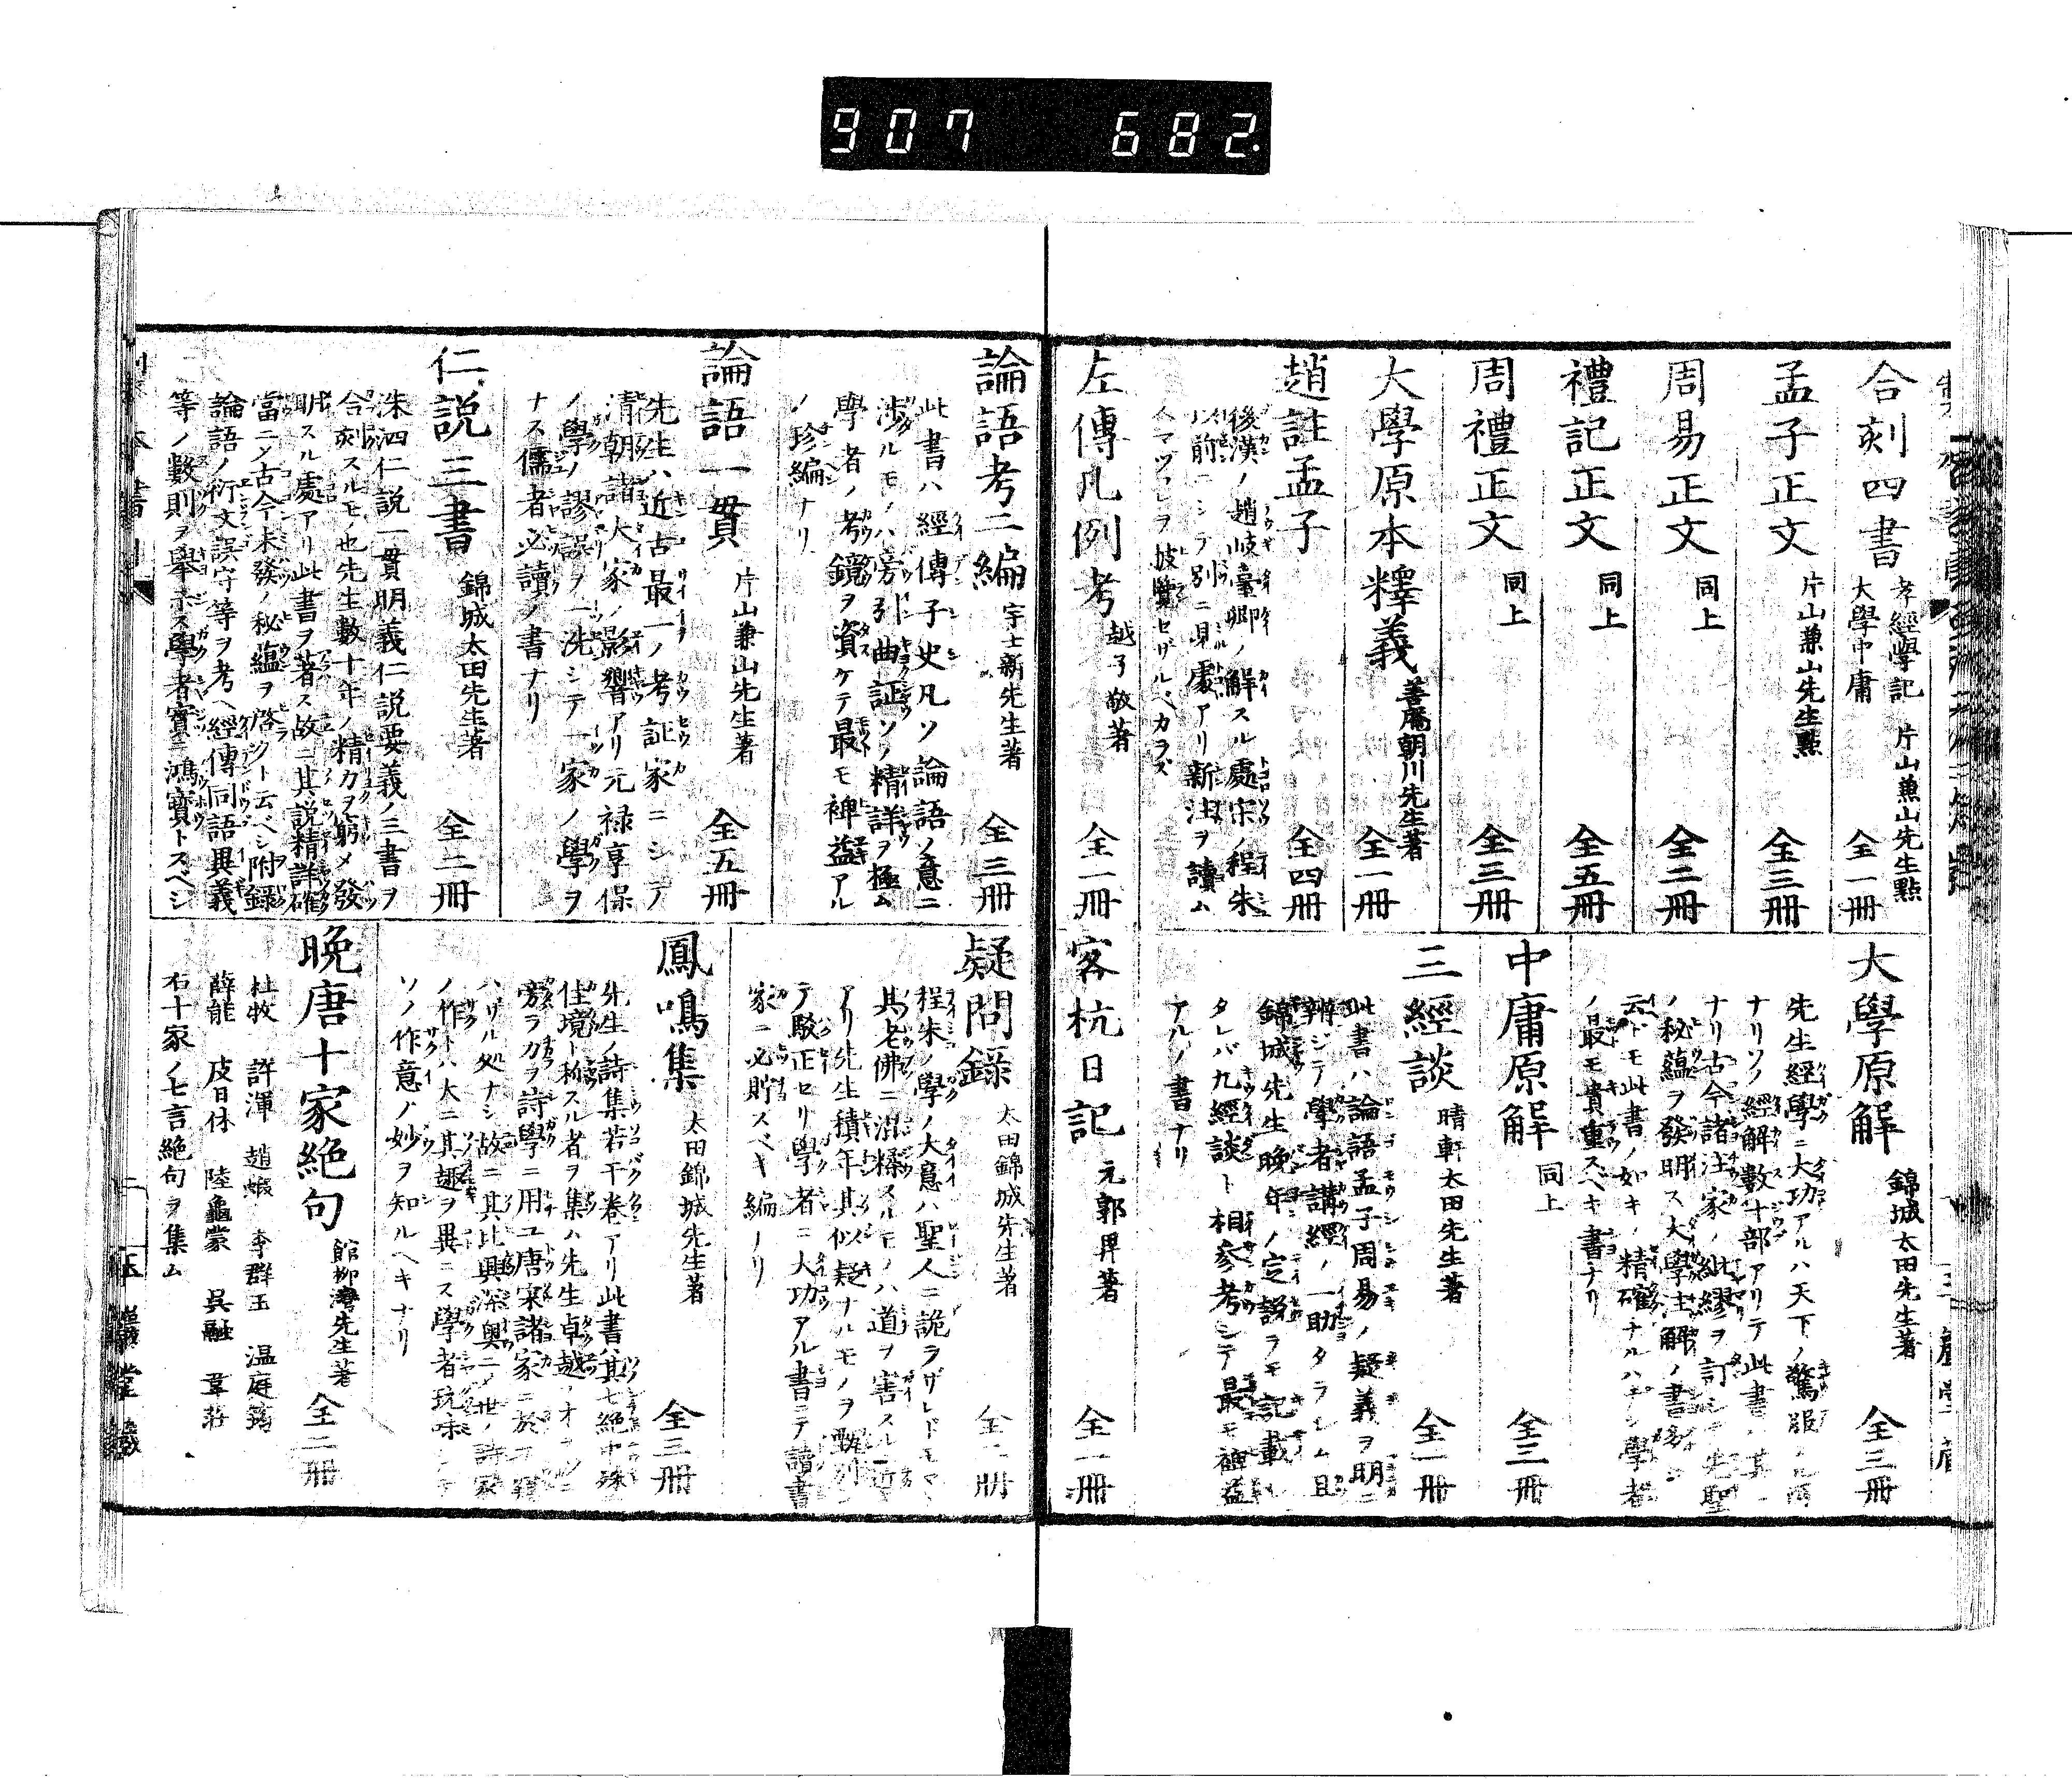 907 682
合刻四書 孝經 學記 大學 中庸 片山兼山先生點 全一冊
孟子正文 片山兼山先生點 全三冊
周易正文 同上 全二冊
禮記正文 同上 全五冊
周禮正文 同上 全三冊
大學原本釋義 善庵朝川先生著 全一冊
趙註孟子 全四冊
後漢ノ趙岐臺卿ノ解スル處宋ノ程朱
ニ前ニシテ別ニ見處アリ新注ヲ讀ム
人マヅコレヲ披覽セザルベカラズ
左傳凡例考 越子敬著 全一冊
大學原解 錦城太田先生著 全三冊
先生經學ニ大功アルハ天下ノ驚服スル所
ナリソノ經解數十部アリテ此書ハ其一
ナリ古今諸注家ノ紕繆ヲ訂シテ先聖
ノ秘蘊ヲ發明ス大學註解ノ書多シ
云ドモ此書ノ如キノ精確ナルハナシ學者
ノ最モ貴重スベキ書ナリ
中庸原解 同上 全三冊
三經談 晴軒太田先生著 全一冊
此書ハ論語孟子周易ノ疑義ヲ明ニ
辨シテ學者講經ノ一助タラシム且
錦城先生晩年ノ定説ヲモ記載シ
タレバ九經談ト相參考シテ最モ裨益
アルノ書ナリ
客杭日記 元郭畀著 全一冊
論語考二編 宇士新先生著 全三冊
此書ハ經傳子史凡ソ論語ノ意ニ
渉ルモノハ旁引曲証ソノ精詳ヲ極ム
學者ノ考鏡ヲ資ケテ最モ裨益アル
ノ珍編ナリ
論語一貫 片山兼山先生著 全五冊
先生ハ近古最一ノ考証家ニシテ
清朝諸大家ノ影響アリ元禄享保
ノ學ノ謬誤ヲ一洗シテ一家ノ學ヲ
ナス儒者必讀ノ書ナリ
仁説三書 錦城太田先生著 全二冊
洙泗仁説一貫明義仁説要義ノ三書ヲ
合刻スルモノ也先生數十年ノ精力ヲ窮メ發
明スル處アリ此書ヲ著ス故ニ其説精詳確
當ニノ古今未發ノ秘蘊ヲ啓クト云ベシ附録
論語ノ衍文誤字等ヲ考ヘ經傳同語異義
等ノ數則ヲ擧示ス學者實ニ鴻寶トスベシ
疑問録 太田錦城先生著 全二冊
程朱ノ學ノ大意ハ聖人ニ詭ラザレドモマヽ
其老佛ニ混糅スルモノハ道ヲ害スルニ近
アリ先生積年其似疑ナルモノヲ甄別シ
テ駁正セリ學者ニ大功アル書ニテ讀書
家ニ必貯スベキ編ナリ
鳳鳴集 太田錦城先生著 全三冊
先生ノ詩集若干卷アリ此書ハ其七絶中殊ニ
佳境ト称スル者ヲ集ム先生卓越ノオヲ
旁ラ力ヲ詩學ニ用ユ唐宋諸家ニ於テ
ハザル処ナシ故ニ其比興深奥ニノ世ノ詩家
ノ作トハ大ニ其趣ヲ異ニス學者玩味シテ
ソノ作意ノ妙ヲ知ルヘキナリ
晩唐十家絶句 館柳灣先生著 全二冊
杜牧 許渾 趙嘏 李群玉 温庭筠
薛能 皮日休 陸龜蒙 呉融 韋莊
右十家ノ七言絶句ヲ集ム